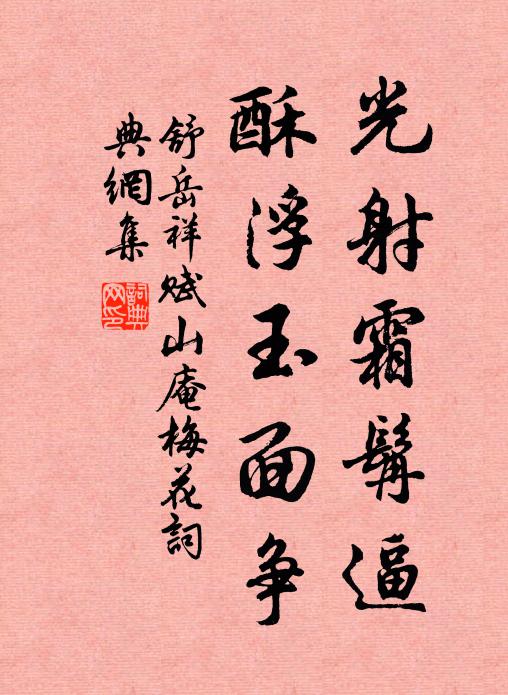 光射霜鬓逼
酥浮玉面争
舒岳祥赋山庵梅花詞
典網集
詞典网印